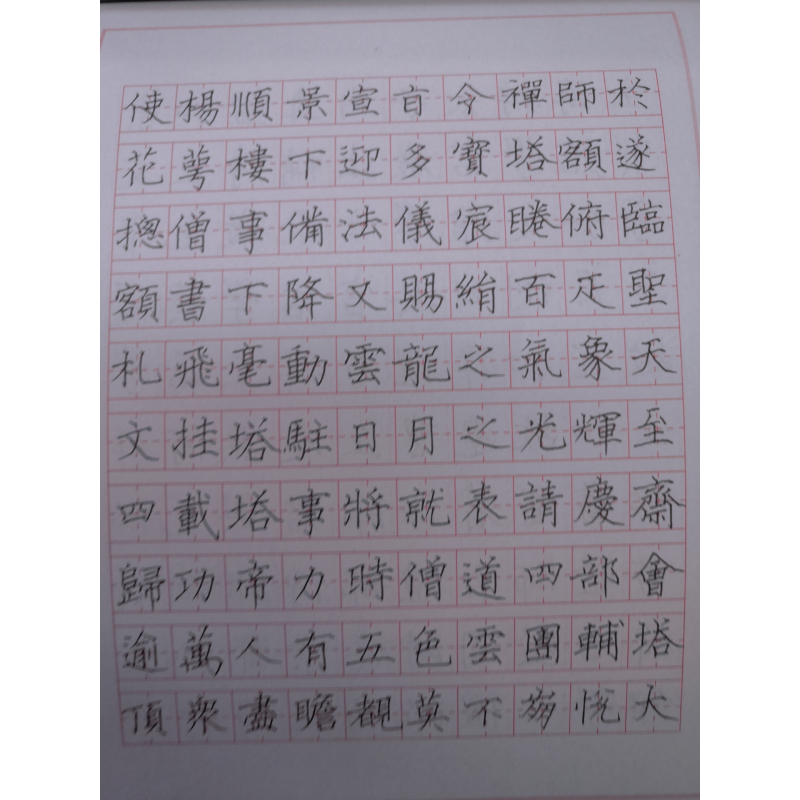 使楊順景宣旨令禪師於
花萼樓下迎多寶塔額遂
揔僧事備法儀宸睠俯臨
額書下降又賜絹百疋聖
札飛毫動雲龍之氣象天
文挂塔駐日月之光輝至
四載塔事將就表請慶齋
歸功帝力時僧道四部會
逾萬人有五色雲團輔塔
頂衆盡瞻覩莫不崩悅大